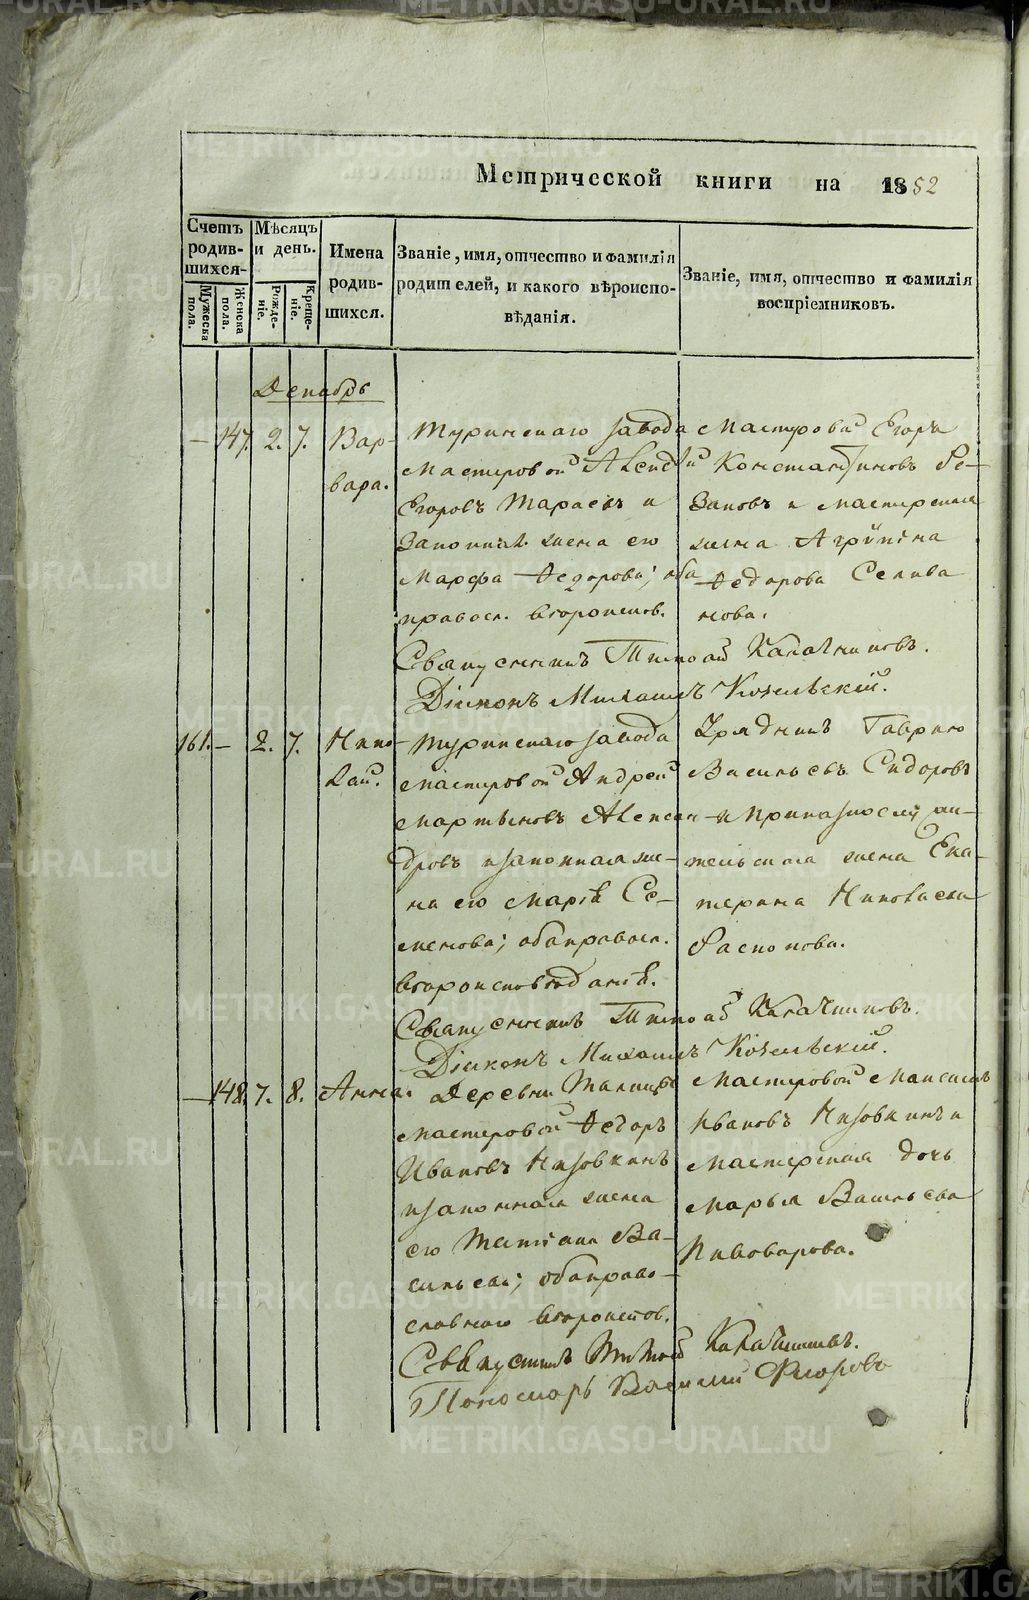 Метрической книги на 1852
Счетъ родив-шихся
Мужеска пола.
Женска пола.
Мѣсяцъ и день.
Рожде-ніе.
Креще-ніе.
Имена родив-шихся.
Званіе, имя, отчество и фамилія родителей, и какого вѣроиспо-вѣданія.
Званіе, имя, отчество и фамилія воспріемниковъ.
Декабрь
— 147. 2. 7. Вар-
вара.
Туринскаго завода
мастеровой
Егоровъ Тарасовъ и
законная жена его
Марфа Федорова; оба
правосл. вѣроисповѣд.
Мастеровой Егоръ
Константиновъ Ре-
зановъ и мастерская
жена Агрипина
Федорова Селива
нова.
Священникъ Тимофей Калачниковъ.
Діаконъ Михаилъ Козельскій.
161. — 2. 7. Нико-
лай.
Туринскаго завода
мастеровой Андрей
Мартыновъ Алексан-
дровъ и законная же-
на его Марія Се-
менова; оба правосл.
вѣроисповѣданія.
Урядникъ Гаврило
Васильевъ Сидоровъ
и приказнослужи-
тельская жена Ека-
терина Николаева
Распопова.
Священникъ Тимофей Калачниковъ.
Діаконъ Михаилъ Козельскій.
— 148. 7. 8. Анна.
Деревни
мастеровой Федоръ
Ивановъ Низовкинъ
и законная жена
его Татіана Ва-
сильева; оба право-
славнаго вѣроиспов.
Мастеровой Максимъ
Ивановъ Низовкинъ и
мастерская дочь
Марья Васильева
Пивоварова.
Священникъ Тимофей Калачниковъ.
Пономарь Василій Флоровъ
METRIKI.GASO-URAL.RU